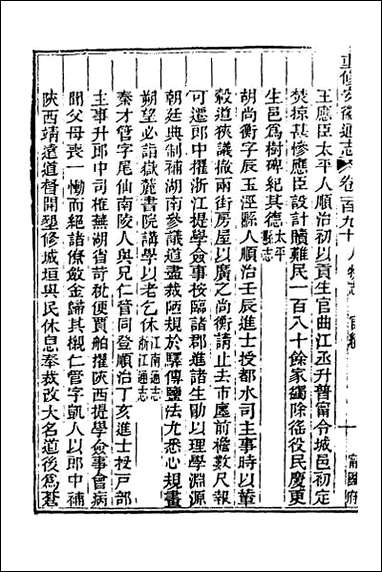 重修安徽通志 卷一百九十 人物志 宦績 一 甯國府
王應臣太平人順治初以貢生官曲江丞升普甯令城邑初定
焚掠甚慘應臣設計贖難民一百八十餘家蠲除徭役民慶更
生邑爲樹碑紀其德太平縣志
胡尚衡字辰玉涇縣人順治壬辰進士授都水司主事時以輦
轂道狹議撤兩街房屋以廣之尚衡請止去市廛前檐數尺報
可遷郎中擢浙江提學僉事按臨諸郡進諸生勖以理學淵源
朝廷典制補湖南參議道盡裁陋規於驛傳鹽法尤悉心規畫
朔望必詣嶽麓書院講學以老乞休江南通志浙江通志
秦才管字尾仙南陵人與兄仁管同登順治丁亥進士授戸部
主事升郎中司榷蕪湖省苛枇便賈舶擢陝西提學僉事會病
聞父母喪一慟而絕諸僚斂金歸其櫬仁管字凱人以郎中補
陝西靖遠道督開墾修城垣與民休息奉裁改大名道後爲蒼